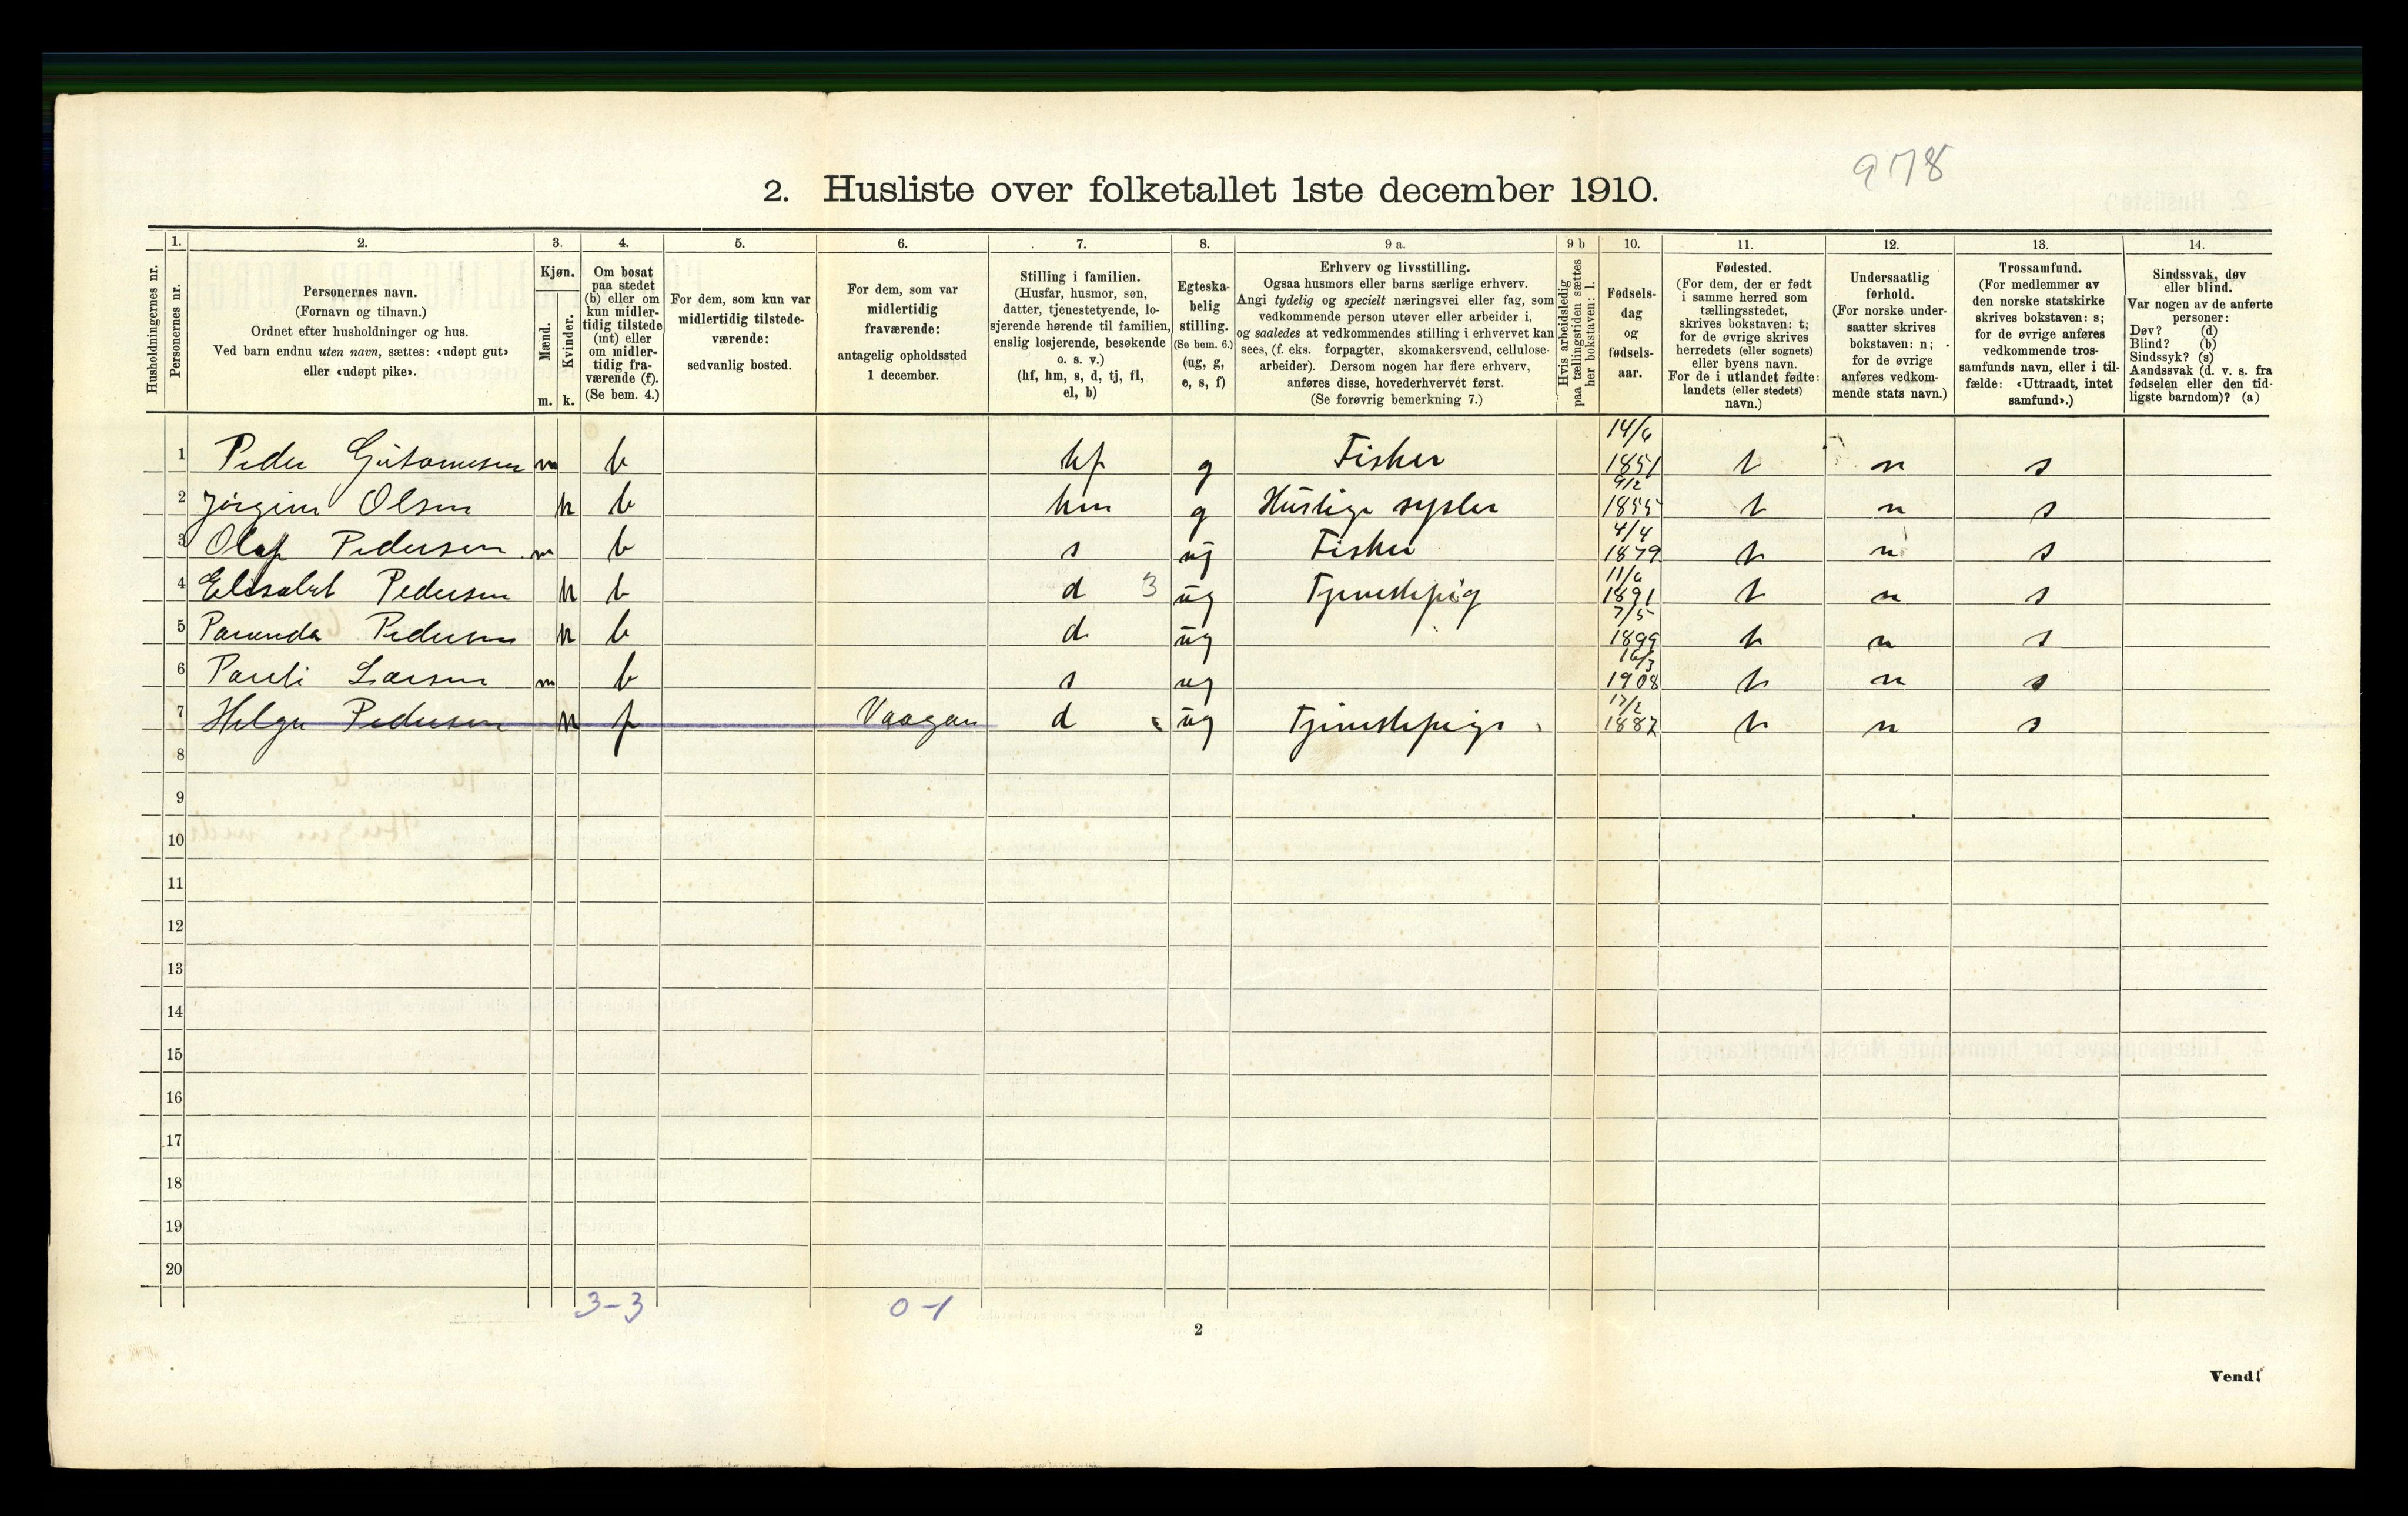 978
2. Husliste over folketallet 1ste december 1910.
Husholdningernes nr.
1. Personernes nr.
2. Personernes navn.
(Fornavn og tilnavn.)
Ordnet efter husholdninger og hus.
Ved barn endnu uten navn, sættes: «udøpt gut»
eller «udøpt pike».
3. Kjøn.
Mænd. Kvinder.
m. k.
4. Om bosat
paa stedet
(b) eller om
kun midler-
tidig tilstede
(mt) eller
om midler-
tidig fra-
værende (f).
(Se bem. 4.)
5. For dem, som kun var
midlertidig tilstede-
værende:
sedvanlig bosted.
6. For dem, som var
midlertidig
fraværende:
antagelig opholdssted
1 december.
7. Stilling i familien.
(Husfar, husmor, søn,
datter, tjenestetyende, lo-
sjerende hørende til familien,
enslig losjerende, besøkende
o. s. v.)
(hf, hm, s, d, tj, fl,
el, b)
8. Egteska-
belig
stilling.
(Se bem. 6.)
(ug, g,
e, s, f)
9 a. Erhverv og livsstilling.
Ogsaa husmors eller barns særlige erhverv.
Angi tydelig og specielt næringsvei eller fag, som
vedkommende person utøver eller arbeider i,
og saaledes at vedkommendes stilling i erhvervet kan
sees, (f. eks. forpagter, skomakersvend, cellulose-
arbeider). Dersom nogen har flere erhverv,
anføres disse, hovederhvervet først.
(Se forøvrig bemerkning 7.)
9 b Hvis arbeidsledig
paa tællingstiden sættes
her bokstaven: l.
10. Fødsels-
dag
og
fødsels-
aar.
11. Fødested.
(For dem, der er født
i samme herred som
tællingsstedet,
skrives bokstaven: t;
for de øvrige skrives
herredets (eller sognets)
eller byens navn.
For de i utlandet fødte:
landets (eller stedets)
navn.)
12. Undersaatlig
forhold.
(For norske under-
saatter skrives
bokstaven: n;
for de øvrige
anføres vedkom-
mende stats navn.)
13. Trossamfund.
(For medlemmer av
den norske statskirke
skrives bokstaven: s;
for de øvrige anføres
vedkommende tros-
samfunds navn, eller i til-
fælde: «Uttraadt, intet
samfund».)
14. Sindssvak, døv
eller blind.
Var nogen av de anførte
personer:
Døv? (d)
Blind? (b)
Sindssyk? (s)
Aandssvak (d. v. s. fra
fødselen eller den tid-
ligste barndom)? (a)
1 Peder m b hf g Fisker 14/6 1851 t n s
2 Jørgine Olsen k b hm g Huslige sysler 9/2 1855 t n s
3 Olaf Pedersen m b s ug Fisker 4/4 1879 t n s
4 Elisabet Pedersen k b d 3 ug Tjenestepig 11/6 1891 t n s
5 Pedersen k b d ug 7/5 1899 t n s
6 Larsen m b s ug 16/3 1908 t n s
7 Helga Pedersen k f Vaagan d ug Tjenestepige 17/2 1887 t n s
8
9
10
11
12
13
14
15
16
17
18
19
20
3-3 0-1
2
Vend!